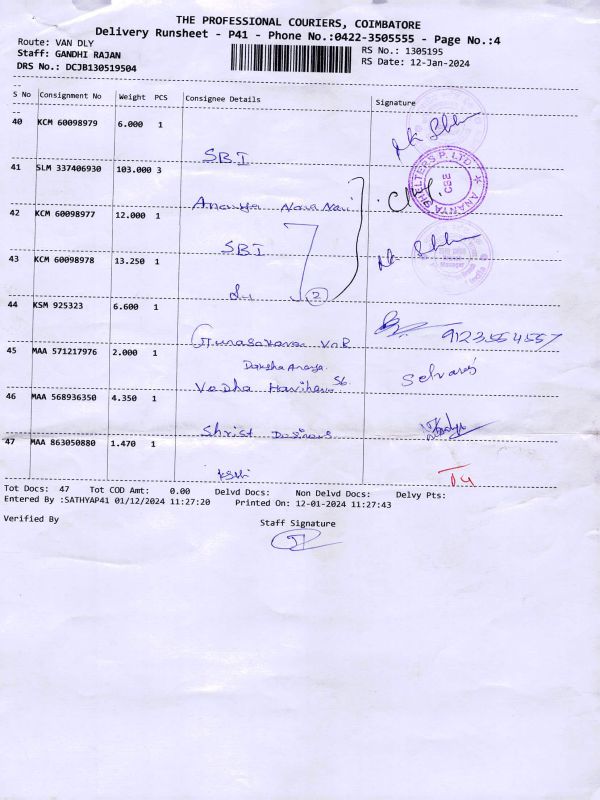 THE PROFESSIONAL COURIERS, COIMBATORE
Delivery Runsheet - P41 - Phone No.:0422-3505555 - Page No.:4
Route: VAN DLY
RS No.: 1305195
Staff: GANDHI RAJAN
RS Date: 12-Jan-2024
DRS No.: DCJB130519504
S No Consignment No Weight PCS Consignee Details Signature
40 KCM 60098979 6.000 1
SBI
41 SLM 337406930 103.000 3
ANANYA SHELTERS P. LTD. CBE
Ananya
42 KCM 60098977 12.000 1
SBI
43 KCM 60098978 13.250 1
do 2
44 KSM 925323 6.600 1
9123554557
45 MAA 571217976 2.000 1
Selvaraj
46 MAA 568936350 4.350 1
47 MAA 863050880 1.470 1
Tot Docs: 47 Tot COD Amt: 0.00 Delvd Docs: Non Delvd Docs: Delvy Pts:
Entered By :SATHYAP41 01/12/2024 11:27:20 Printed On: 12-01-2024 11:27:43
Verified By
Staff Signature